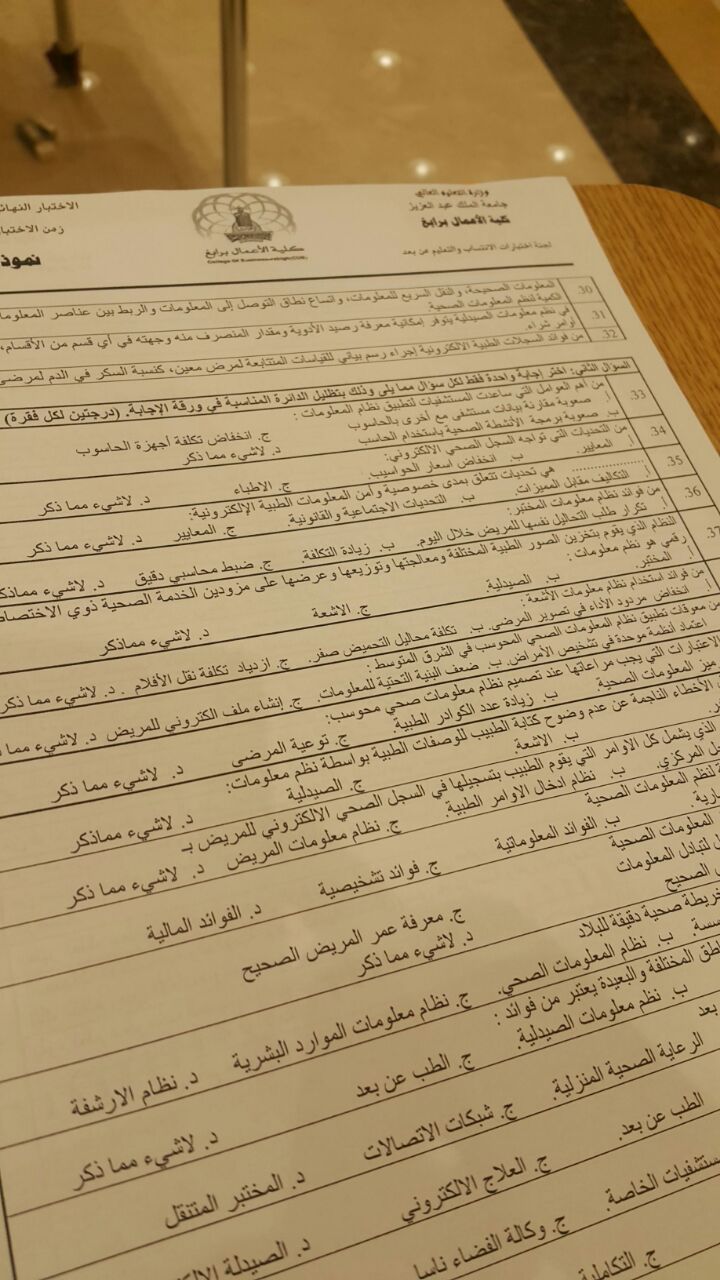 وزارة التعليم العالي
جامعة الملك عبد العزيز
كلية الأعمال برابغ
لجنة اختبارات الانتساب والتعليم عن بعد
كلية الأعمال برابغ
الاختبار النهائ
زمن الاختبار
نموذ
30. المعلومات الصحيحة، والنقل السريع للمعلومات، واتساع نطاق التوصل إلى المعلومات والربط بين عناصر المعلوما
الكمية لنظم المعلومات الصحية
31. في نظم معلومات الصيدلية يتوفر إمكانية معرفة رصيد الأدوية ومقدار المنصرف منه وجهته في أي قسم من الأقسام،
أوامر شراء.
32. من فوائد السجلات الطبية الالكترونية إجراء رسم بياني للقياسات المتتابعة لمرض معين، كنسبة السكر في الدم لمرضى
السؤال الثاني: اختر إجابة واحدة فقط لكل سؤال مما يلي وذلك بتظليل الدائرة المناسبة في ورقة الإجابة. (درجتين لكل فقرة)
33. من أهم العوامل التي ساعدت المستشفيات لتطبيق نظام المعلومات:
أ. صعوبة مقارنة بيانات مستشفى مع أخرى بالحاسوب ج. انخفاض تكلفة أجهزة الحاسوب
ب. صعوبة برمجة الأنشطة الصحية باستخدام الحاسب د. لاشيء مما ذكر
34. من التحديات التي تواجه السجل الصحي الالكتروني:
أ. المعايير. ب. انخفاض اسعار الحواسيب. ج. الاطباء د. لاشيء مما ذكر
35. .................. هي تحديات تتعلق بمدى خصوصية وأمن المعلومات الطبية الإلكترونية:
أ. التكاليف مقابل المميزات. ب. التحديات الاجتماعية والقانونية. ج. المعايير د. لاشيء مما ذكر
36. من فوائد نظام معلومات المختبر:
أ. تكرار طلب التحاليل نفسها للمريض خلال اليوم. ب. زيادة التكلفة. ج. ضبط محاسبي دقيق د. لاشيء مماذكر
37. النظام الذي يقوم بتخزين الصور الطبية المختلفة ومعالجتها وتوزيعها وعرضها على مزودين الخدمة الصحية ذوي الاختصا
رقمي هو نظم معلومات:
أ. المختبر. ب. الصيدلية. ج. الاشعة د. لاشيء مماذكر
من فوائد استخدام نظام معلومات الأشعة:
أ. انخفاض مردود الأداء في تصوير المرضى. ب. تكلفة محاليل التحميض صفر. ج. ازدياد تكلفة نقل الأفلام. د. لاشيء مما ذكر
من معوقات تطبيق نظام المعلومات الصحي المحوسب في الشرق المتوسط:
اعتماد أنظمة موحدة في تشخيص الأمراض. ب. ضعف البنية التحتية للمعلومات. ج. إنشاء ملف الكتروني للمريض د. لاشيء مما
الاعتبارات التي يجب مراعاتها عند تصميم نظام معلومات صحي محوسب:
ميز المعلومات الصحية. ب. زيادة عدد الكوادر الطبية. ج. توعية المرضى د. لاشيء مما ذكر
الأخطاء الناجمة عن عدم وضوح كتابة الطبيب للوصفات الطبية بواسطة نظم معلومات:
ب. الاشعة. ج. الصيدلية د. لاشيء مماذكر
الذي يشمل كل الأوامر التي يقوم الطبيب بتسجيلها في السجل الصحي الالكتروني للمريض بـ
المركزي. ب. نظام ادخال الاوامر الطبية. ج. نظام معلومات المريض د. لاشيء مما ذكر
لنظم المعلومات الصحية
ب. الفوائد المعلوماتية ج. فوائد تشخيصية د. الفوائد المالية
المعلومات الصحية
لتبادل المعلومات ج. معرفة عمر المريض الصحيح
الصحيح د. لاشيء مما ذكر
خريطة صحية دقيقة للبلاد
ب. نظام المعلومات الصحي. ج. نظام معلومات الموارد البشرية د. نظام الارشفة
المختلفة والبعيدة يعتبر من فوائد:
ب. نظم معلومات الصيدلية. ج. الطب عن بعد د. لاشيء مما ذكر
بعد
الرعاية الصحية المنزلية. ج. شبكات الاتصالات د. المختبر المتنقل
الطب عن بعد. ج. العلاج الالكتروني د. الصيدلة
الخاصة. ج. وكالة الفضاء ناسا
ج. التكاملية